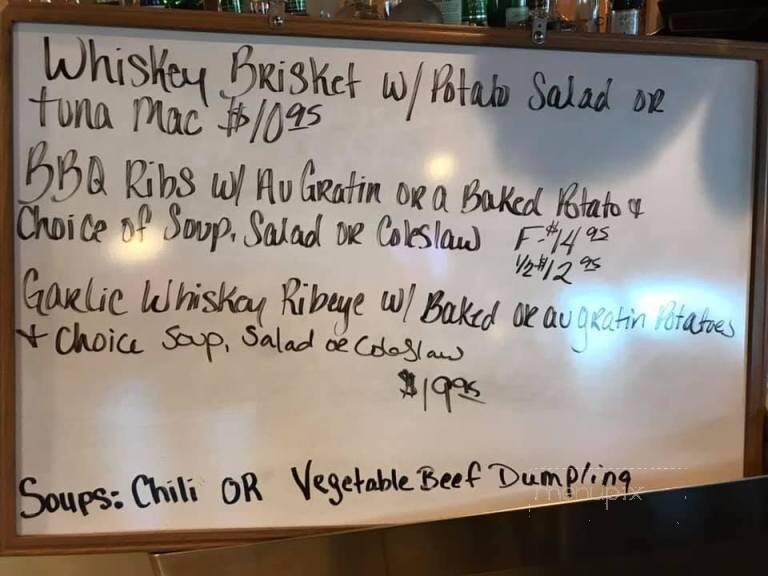 Whiskey Brisket w/ Potato Salad or
tuna Mac $10.95
BBQ Ribs w/ Au Gratin or a Baked Potato &
Choice of Soup, Salad or Coleslaw F-$14.95
1/2-$12.95
Garlic Whiskey Ribeye w/ Baked or au gratin Potatoes
+ Choice Soup, Salad or Coleslaw
$19.95
Soups: Chili OR Vegetable Beef Dumpling
menupix